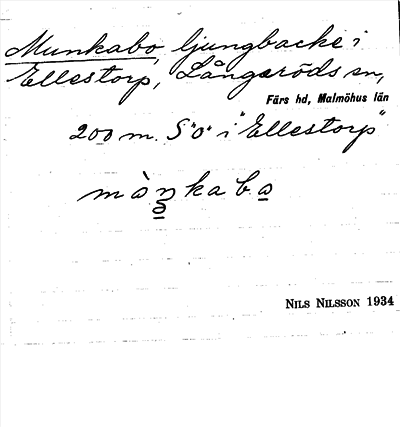 Munkabo, ljungbacke i
Ellestorp, Långaröds sn,
Färs hd, Malmöhus län
200 m. S "o" i "Ellestorp"
Nils Nilsson 1934